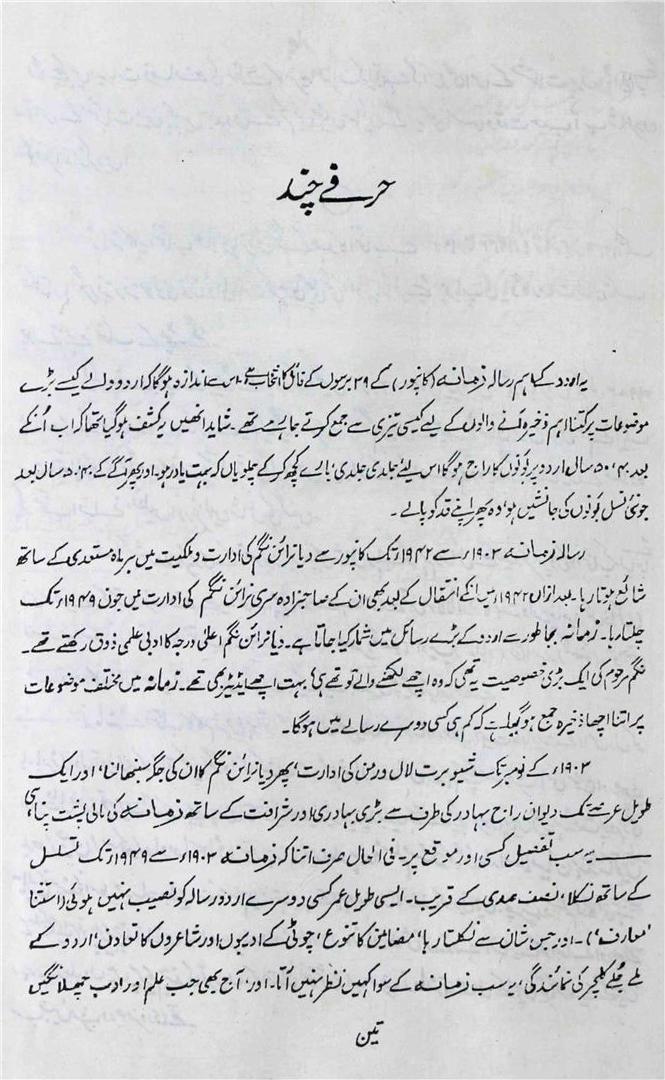 حرفے چند
یہ اردو کے اہم رسالہ زمانہ (کانپور) کے ۳۹ برسوں کے فائل کا انتخاب ہے، اس سے اندازہ ہوگا کہ اردو والے کیسے بڑے
موضوعات پر کتنا اہم ذخیرہ آنے والوں کے لیے کیسی تیزی سے جمع کرتے جا رہے تھے۔ شاید انھیں یہ کشف ہو گیا تھا کہ اب اُنکے
بعد ۴۰، ۵۰ سال اردو پر بَونوں کا راج ہوگا اس لئے جلدی جلدی، بارے کچھ کر کے چلو یاں کہ بہت یاد رہو۔ اور پھر آگے کے ۴۰، ۵۰ سال بعد
جو نئی نسل بَونوں کی جانشیں ہو، وہ پھر اپنے قد کو پالے۔
رسالہ زمانہ ۱۹۰۳ء سے ۱۹۴۲ء تک کانپور سے دیا نرائن نگم کی ادارت و ملکیت میں ہر ماہ مستعدی کے ساتھ
شائع ہوتا رہا۔ بعد ازاں ۱۹۴۲ء میں انکے انتقال کے بعد بھی ان کے صاحبزادہ سری نرائن نگم کی ادارت میں جون ۱۹۴۹ء تک
چلتا رہا۔ زمانہ بجا طور سے اردو کے بڑے رسائل میں شمار کیا جاتا ہے۔ دیا نرائن نگم اعلیٰ درجہ کا ادبی علمی ذوق رکھتے تھے۔
نگم مرحوم کی ایک بڑی خصوصیت یہ تھی کہ وہ اچھے لکھنے والے تو تھے ہی، بہت اچھے ایڈیٹر بھی تھے۔ زمانہ میں مختلف موضوعات
پر اتنا اچھا ذخیرہ جمع ہو گیا ہے کہ کم ہی کسی دوسرے رسالے میں ہوگا۔
۱۹۰۳ء کے نومبر تک شیو برت لال ورمن کی ادارت، پھر دیا نرائن نگم کا ان کی جگہ سنبھالنا، اور ایک
طویل عرصے تک دیوان راج بہادر کی طرف سے بڑی بہادری اور شرافت کے ساتھ زمانہ کی مالی پشت پناہی
——— یہ سب تفصیل کسی اور موقع پر۔ فی الحال صرف اتنا کہ زمانہ ۱۹۰۳ء سے ۱۹۴۹ء تک تسلسل
کے ساتھ نکلا، نصف صدی کے قریب۔ ایسی طویل عمر کسی دوسرے اردو رسالہ کو نصیب نہیں ہوئی (استثنا
'معارف')۔ اور جس شان سے نکلتا رہا، مضامین کا تنوع، چوٹی کے ادیبوں اور شاعروں کا تعاون، اردو کے
ملے جُلے کلچر کی نمائندگی، یہ سب زمانہ کے سوا کہیں نظر نہیں آتا۔ اور، آج بھی جب علم اور ادب چھلانگیں
تین